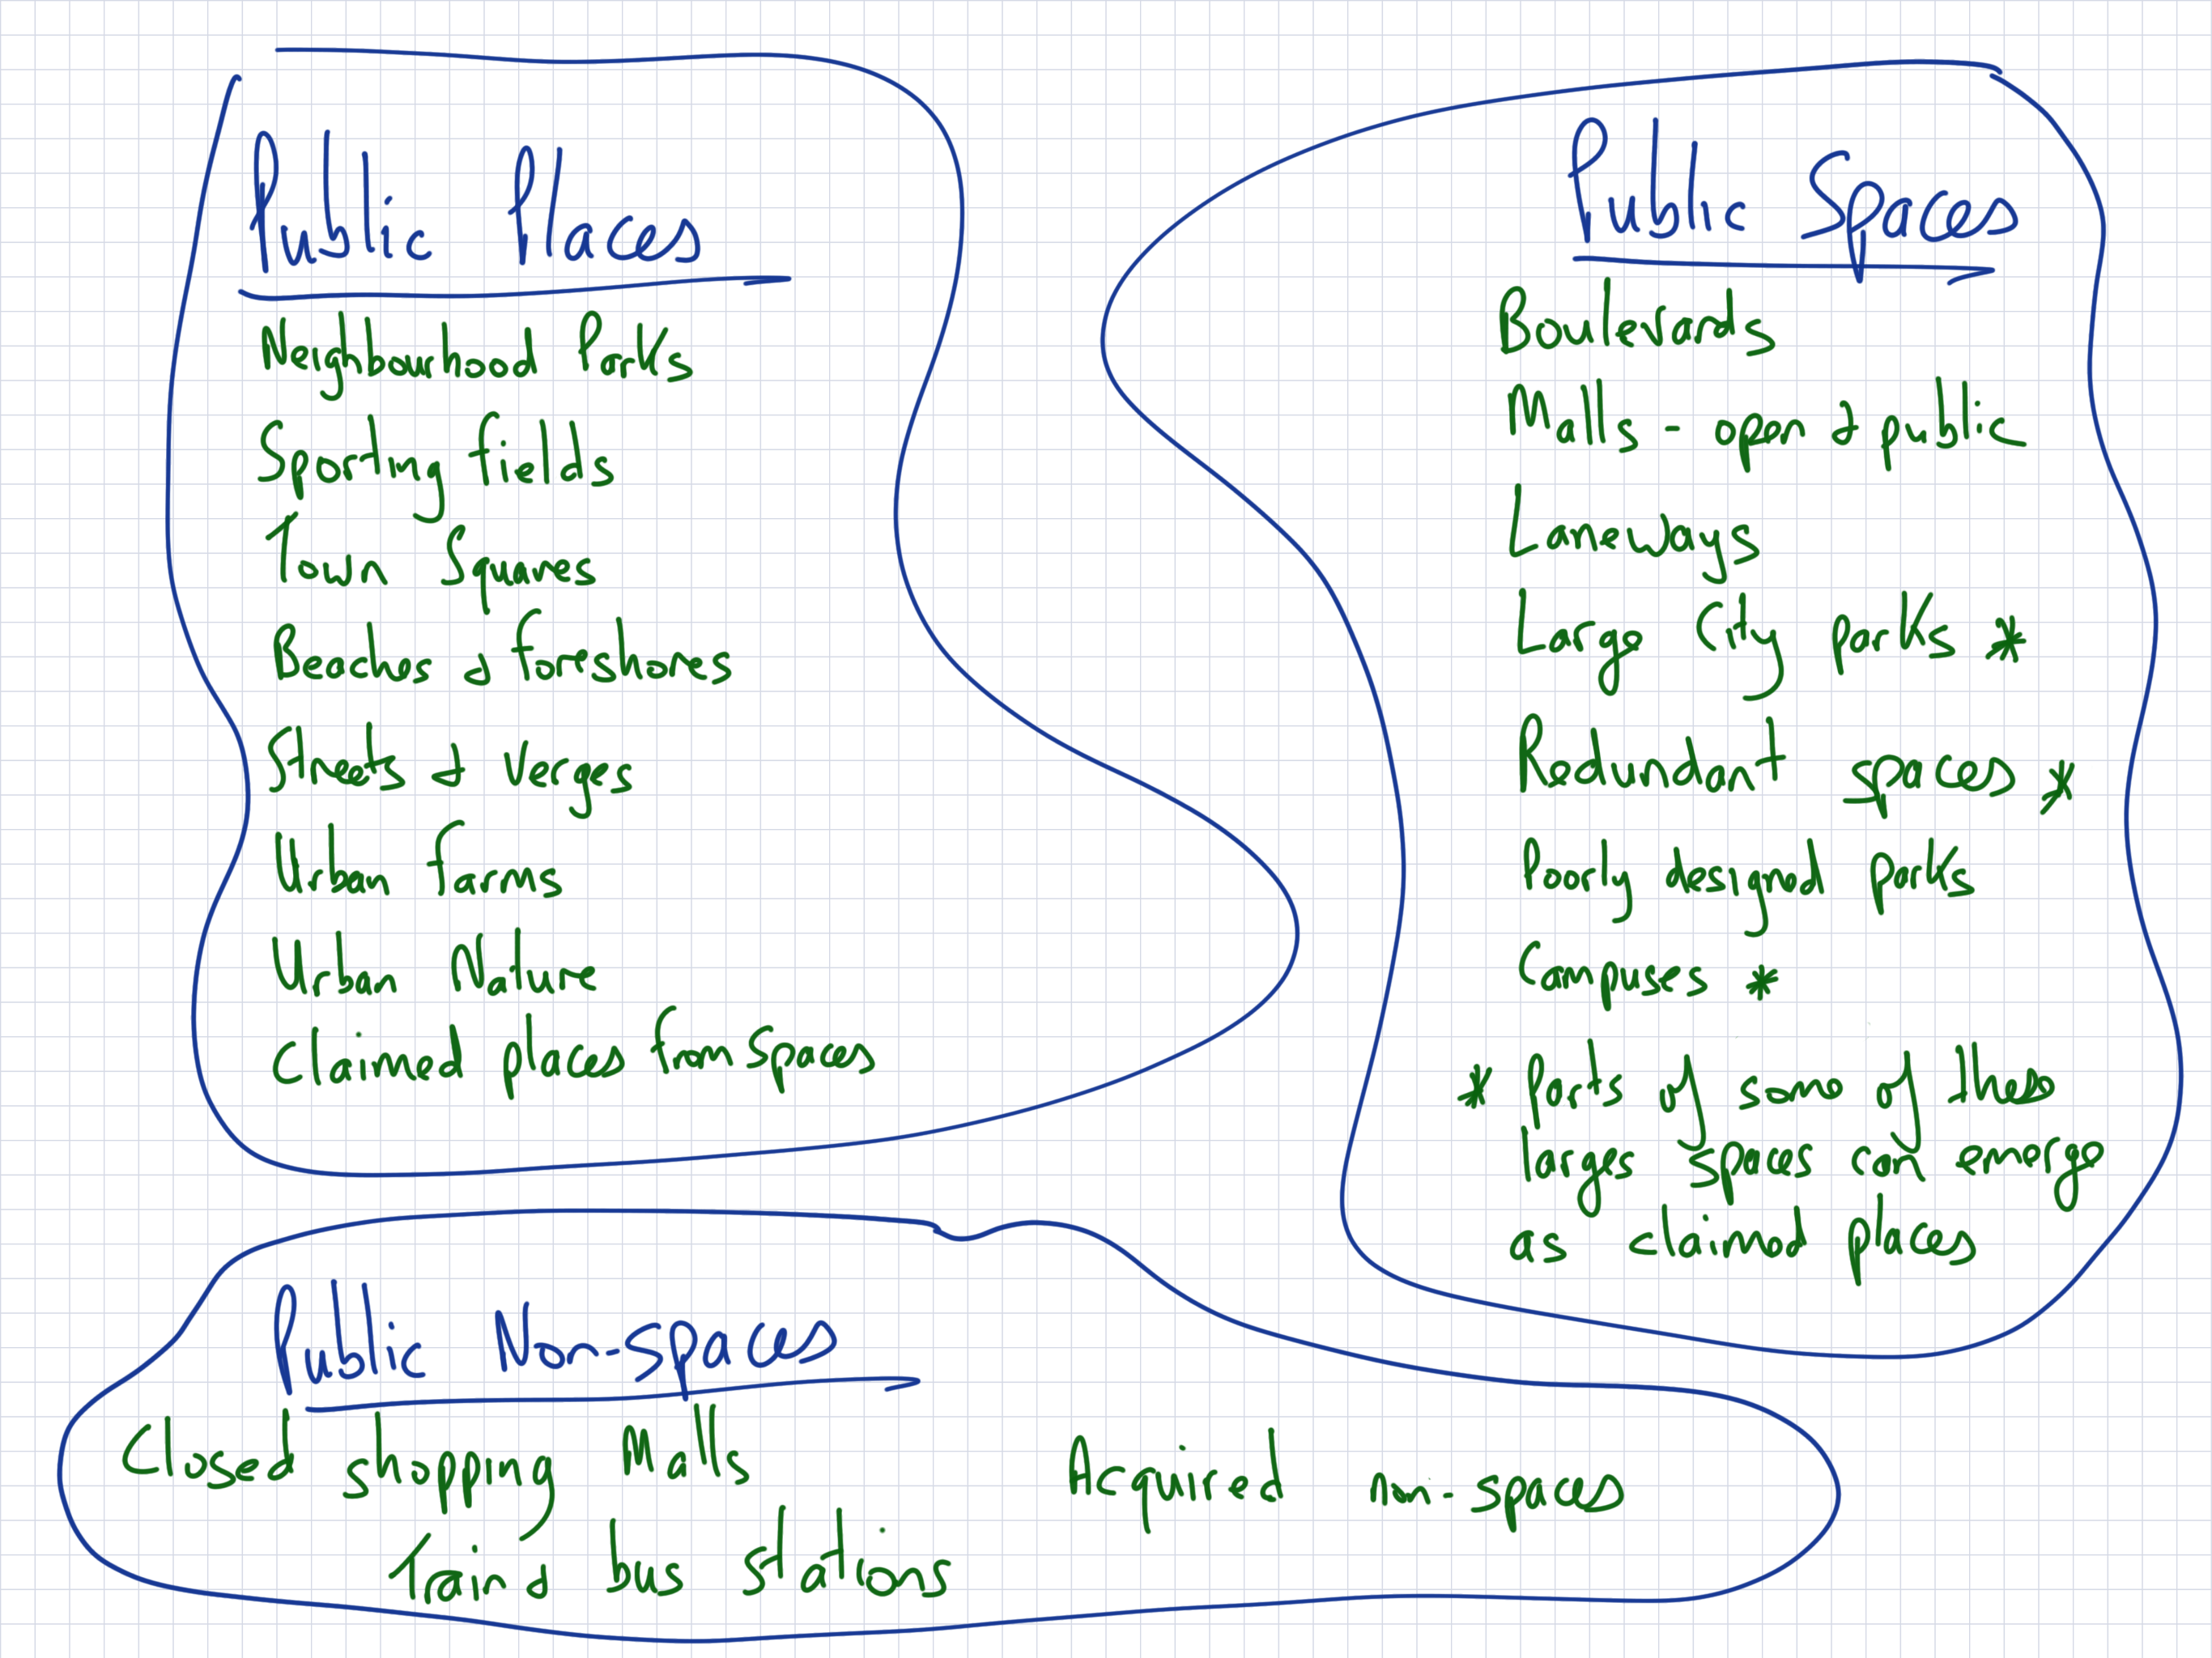 Public Places
Neighbourhood Parks
Sporting fields
Town Squares
Beaches & foreshores
Streets & Verges
Urban farms
Urban Nature
Claimed places from spaces
Public Spaces
Boulevards
Malls - open & public
Laneways
Large City parks *
Redundant spaces *
Poorly designed parks
Campuses *
* Parts of some of these
larges spaces can emerge
as claimed places
Public Non-spaces
Closed shopping Malls
Train & bus stations
Acquired non-spaces